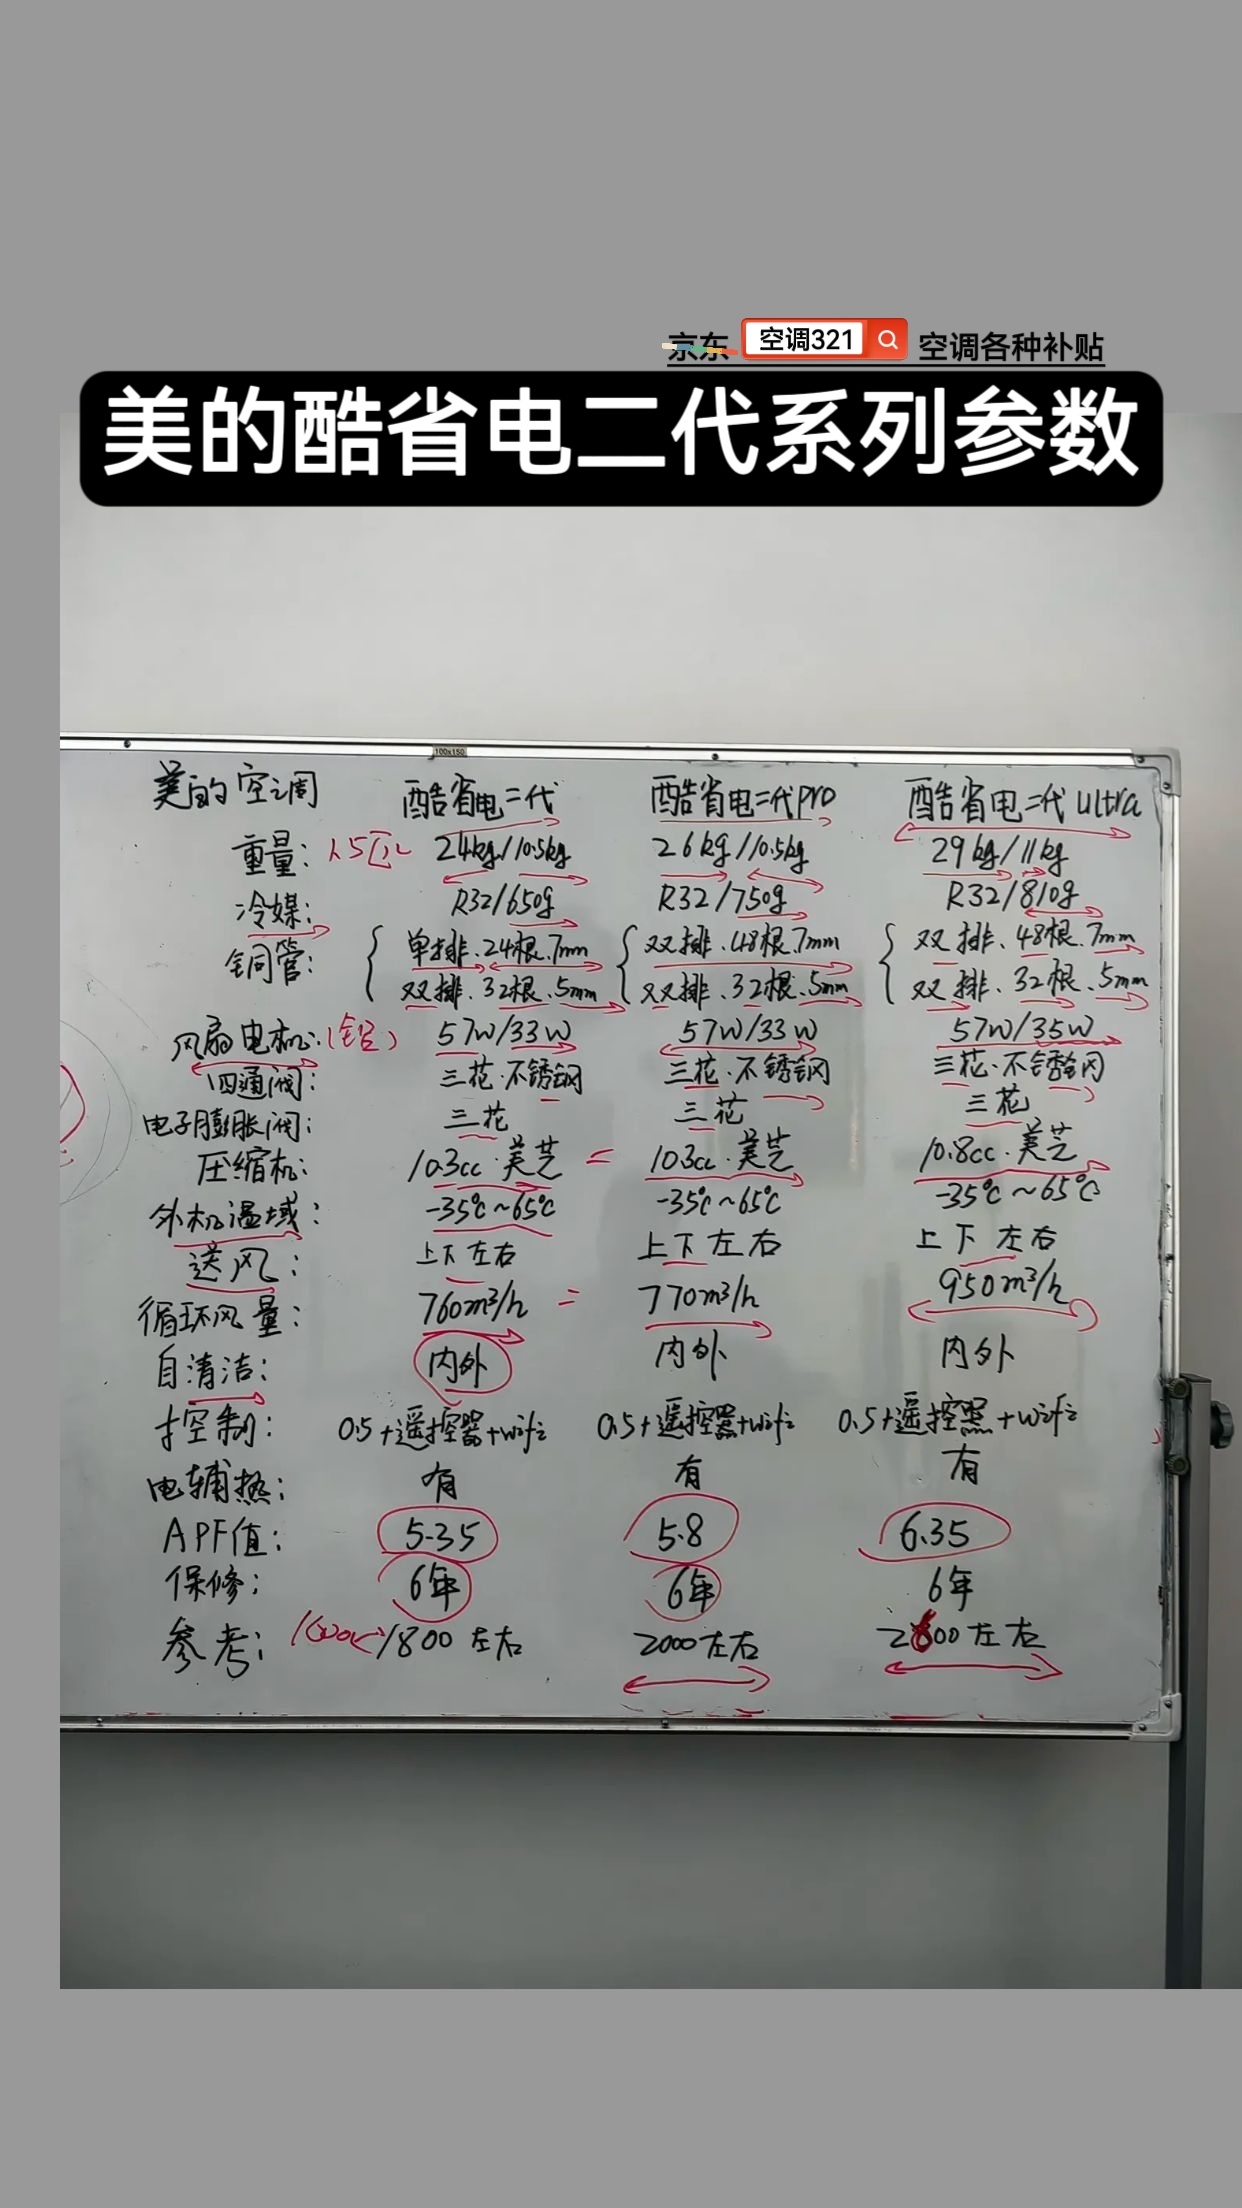 京东 空调321 空调各种补贴
美的酷省电二代系列参数
100x150
美的空调 酷省电二代 酷省电二代pro 酷省电二代ultra
重量: 1.5匹 24kg/10.5kg 26kg/10.5kg 29kg/11kg
冷媒: R32/650g R32/750g R32/810g
铜管: 单排.24根.7mm 双排.48根.7mm 双排.48根.7mm
双排.32根.5mm 双排.32根.5mm 双排.32根.5mm
风扇电机:(铝) 57W/33W 57W/33W 57W/35W
四通阀: 三花.不锈钢 三花.不锈钢 三花.不锈钢
电子膨胀阀: 三花 三花 三花
压缩机: 10.3cc.美芝 = 10.3cc.美芝 10.8cc.美芝
外机温域: -35℃~65℃ -35℃~65℃ -35℃~65℃
送风: 上下左右 上下左右 上下左右
循环风量: 760m³/h = 770m³/h 950m³/h
自清洁: 内外 内外 内外
控制: 0.5+遥控器+wifi 0.5+遥控器+wifi 0.5+遥控器+wifi
电辅热: 有 有 有
APF值: 5.35 5.8 6.35
保修: 6年 6年 6年
参考: 1800左右 2000左右 2800左右